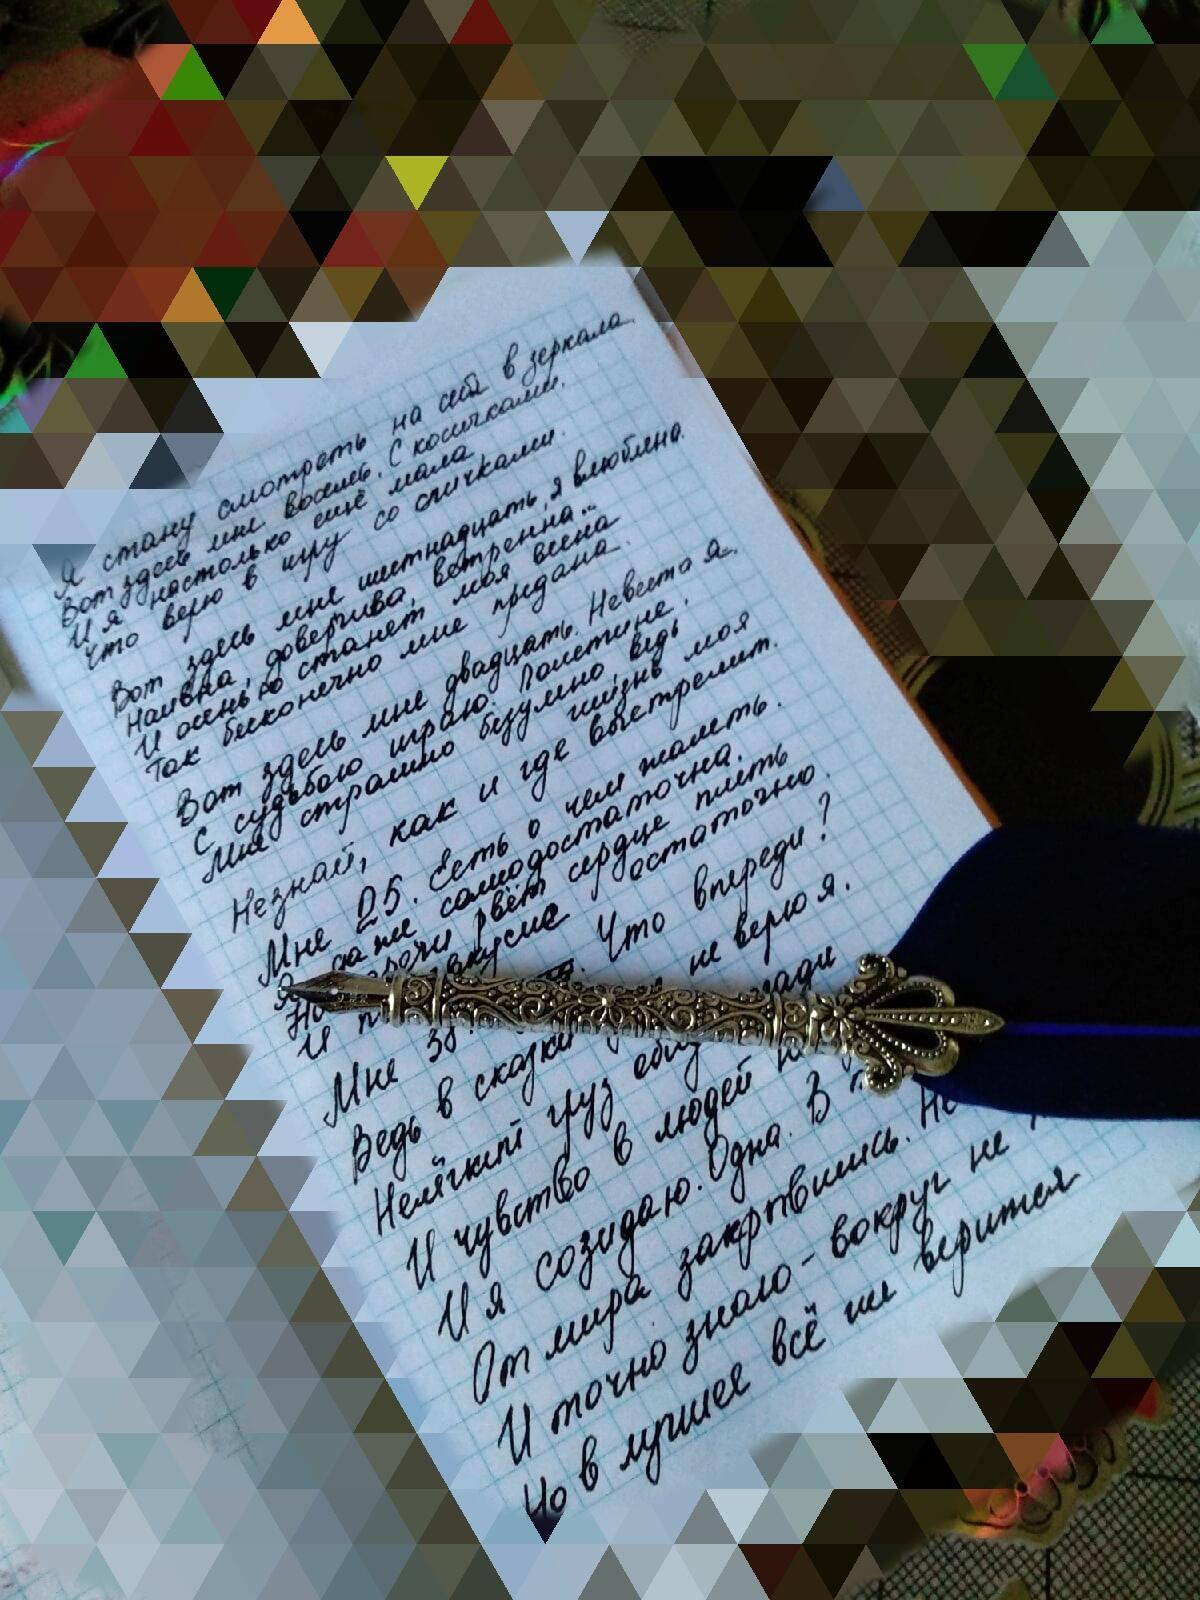 Я стану смотреть на себя в зеркала.
Вот здесь мне восемь. С косичками.
И я настолько ещё мала
Что верю в игру со спичками.
Вот здесь мне шестнадцать, я влюблена.
Наивна, доверчива, ветренна...
И осенью станет моя весна
Так бесконечно мне предана.
Вот здесь мне двадцать. Невеста я.
С судьбою играю. Полетине.
Мне страшно безумно ведь
Незнай, как и где жизнь моя выстрелит.
Мне 25. Есть о чем жалеть.
Я даже самодостаточна.
Но рвёт сердце плеть
И остаточно.
Мне Что впереди?
Ведь в сказки не верю я.
Нелёгкий груз
И чувство в людей
И я созидаю. Одна. В
От мира закрывшись.
И точно знаю - вокруг не
Но в лучшее всё же верится